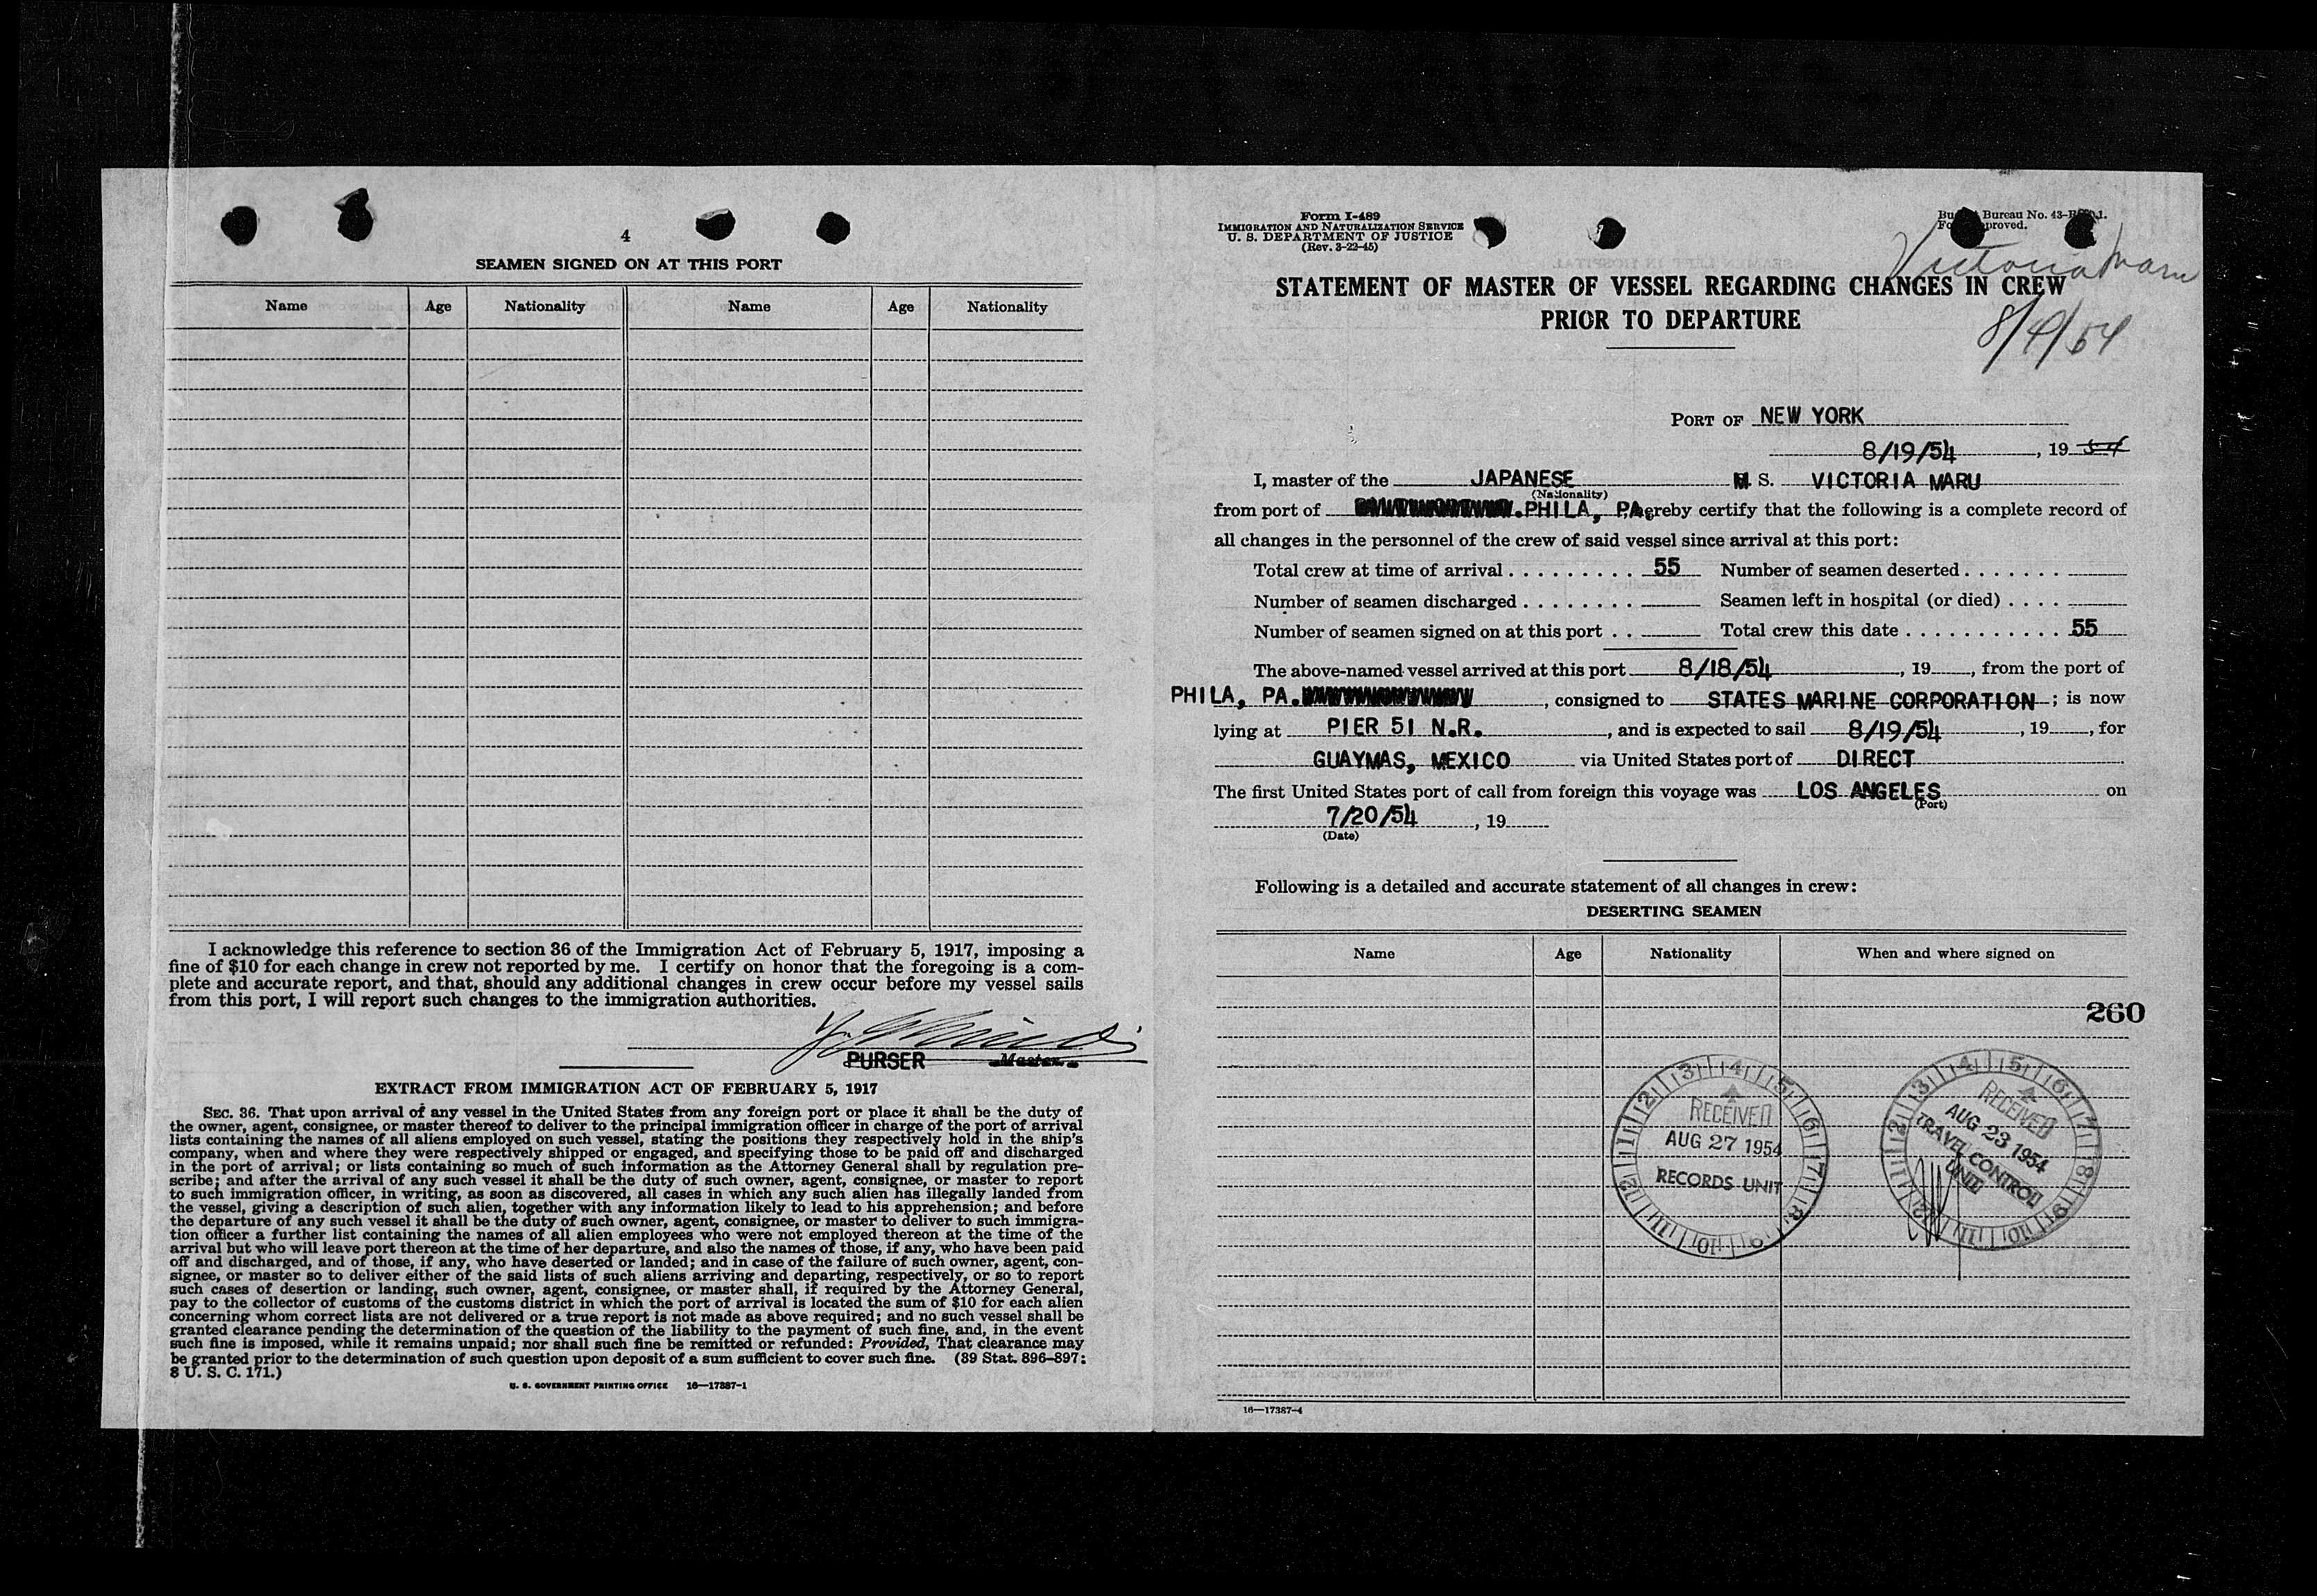 4
SEAMEN SIGNED ON AT THIS PORT
Name Age Nationality Name Age Nationality
I acknowledge this reference to section 36 of the Immigration Act of February 5, 1917, imposing a
fine of $10 for each change in crew not reported by me. I certify on honor that the foregoing is a com-
plete and accurate report, and that, should any additional changes in crew occur before my vessel sails
from this port, I will report such changes to the immigration authorities.
PURSER Master.
EXTRACT FROM IMMIGRATION ACT OF FEBRUARY 5, 1917
SEC. 36. That upon arrival of any vessel in the United States from any foreign port or place it shall be the duty of
the owner, agent, consignee, or master thereof to deliver to the principal immigration officer in charge of the port of arrival
lists containing the names of all aliens employed on such vessel, stating the positions they respectively hold in the ship's
company, when and where they were respectively shipped or engaged, and specifying those to be paid off and discharged
in the port of arrival; or lists containing so much of such information as the Attorney General shall by regulation pre-
scribe; and after the arrival of any such vessel it shall be the duty of such owner, agent, consignee, or master to report
to such immigration officer, in writing, as soon as discovered, all cases in which any such alien has illegally landed from
the vessel, giving a description of such alien, together with any information likely to lead to his apprehension; and before
the departure of any such vessel it shall be the duty of such owner, agent, consignee, or master to deliver to such immigra-
tion officer a further list containing the names of all alien employees who were not employed thereon at the time of the
arrival but who will leave port thereon at the time of her departure, and also the names of those, if any, who have been paid
off and discharged, and of those, if any, who have deserted or landed; and in case of the failure of such owner, agent, con-
signee, or master so to deliver either of the said lists of such aliens arriving and departing, respectively, or so to report
such cases of desertion or landing, such owner, agent, consignee, or master shall, if required by the Attorney General,
pay to the collector of customs of the customs district in which the port of arrival is located the sum of $10 for each alien
concerning whom correct lists are not delivered or a true report is not made as above required; and no such vessel shall be
granted clearance pending the determination of the question of the liability to the payment of such fine, and, in the event
such fine is imposed, while it remains unpaid; nor shall such fine be remitted or refunded: Provided, That clearance may
be granted prior to the determination of such question upon deposit of a sum sufficient to cover such fine. (39 Stat. 896-897;
8 U. S. C. 171.)
U. S. GOVERNMENT PRINTING OFFICE 16—17387-1
Form I-489
IMMIGRATION AND NATURALIZATION SERVICE
U. S. DEPARTMENT OF JUSTICE
(Rev. 3-22-45)
Bureau No. 43-
Victoria Maru
STATEMENT OF MASTER OF VESSEL REGARDING CHANGES IN CREW
PRIOR TO DEPARTURE
8/4/54
PORT OF NEW YORK
8/19/54, 19 54
I, master of the JAPANESE M. S. VICTORIA MARU
(Nationality)
from port of PHILA, PA, hereby certify that the following is a complete record of
all changes in the personnel of the crew of said vessel since arrival at this port:
Total crew at time of arrival . . . . . . . . . 55 Number of seamen deserted . . . . . . .
Number of seamen discharged . . . . . . . . Seamen left in hospital (or died) . . . .
Number of seamen signed on at this port . . Total crew this date . . . . . . . . . . . 55
The above-named vessel arrived at this port 8/18/54, 19, from the port of
PHILA, PA., consigned to STATES MARINE CORPORATION; is now
lying at PIER 51 N.R., and is expected to sail 8/19/54, 19, for
GUAYMAS, MEXICO via United States port of DIRECT
The first United States port of call from foreign this voyage was LOS ANGELES on
(Port)
7/20/54, 19
(Date)
Following is a detailed and accurate statement of all changes in crew:
DESERTING SEAMEN
Name Age Nationality When and where signed on
260
RECEIVED
AUG 27 1954
RECORDS UNIT
RECEIVED
AUG 23 1954
TRAVEL CONTROL
UNIT
16—17387-4